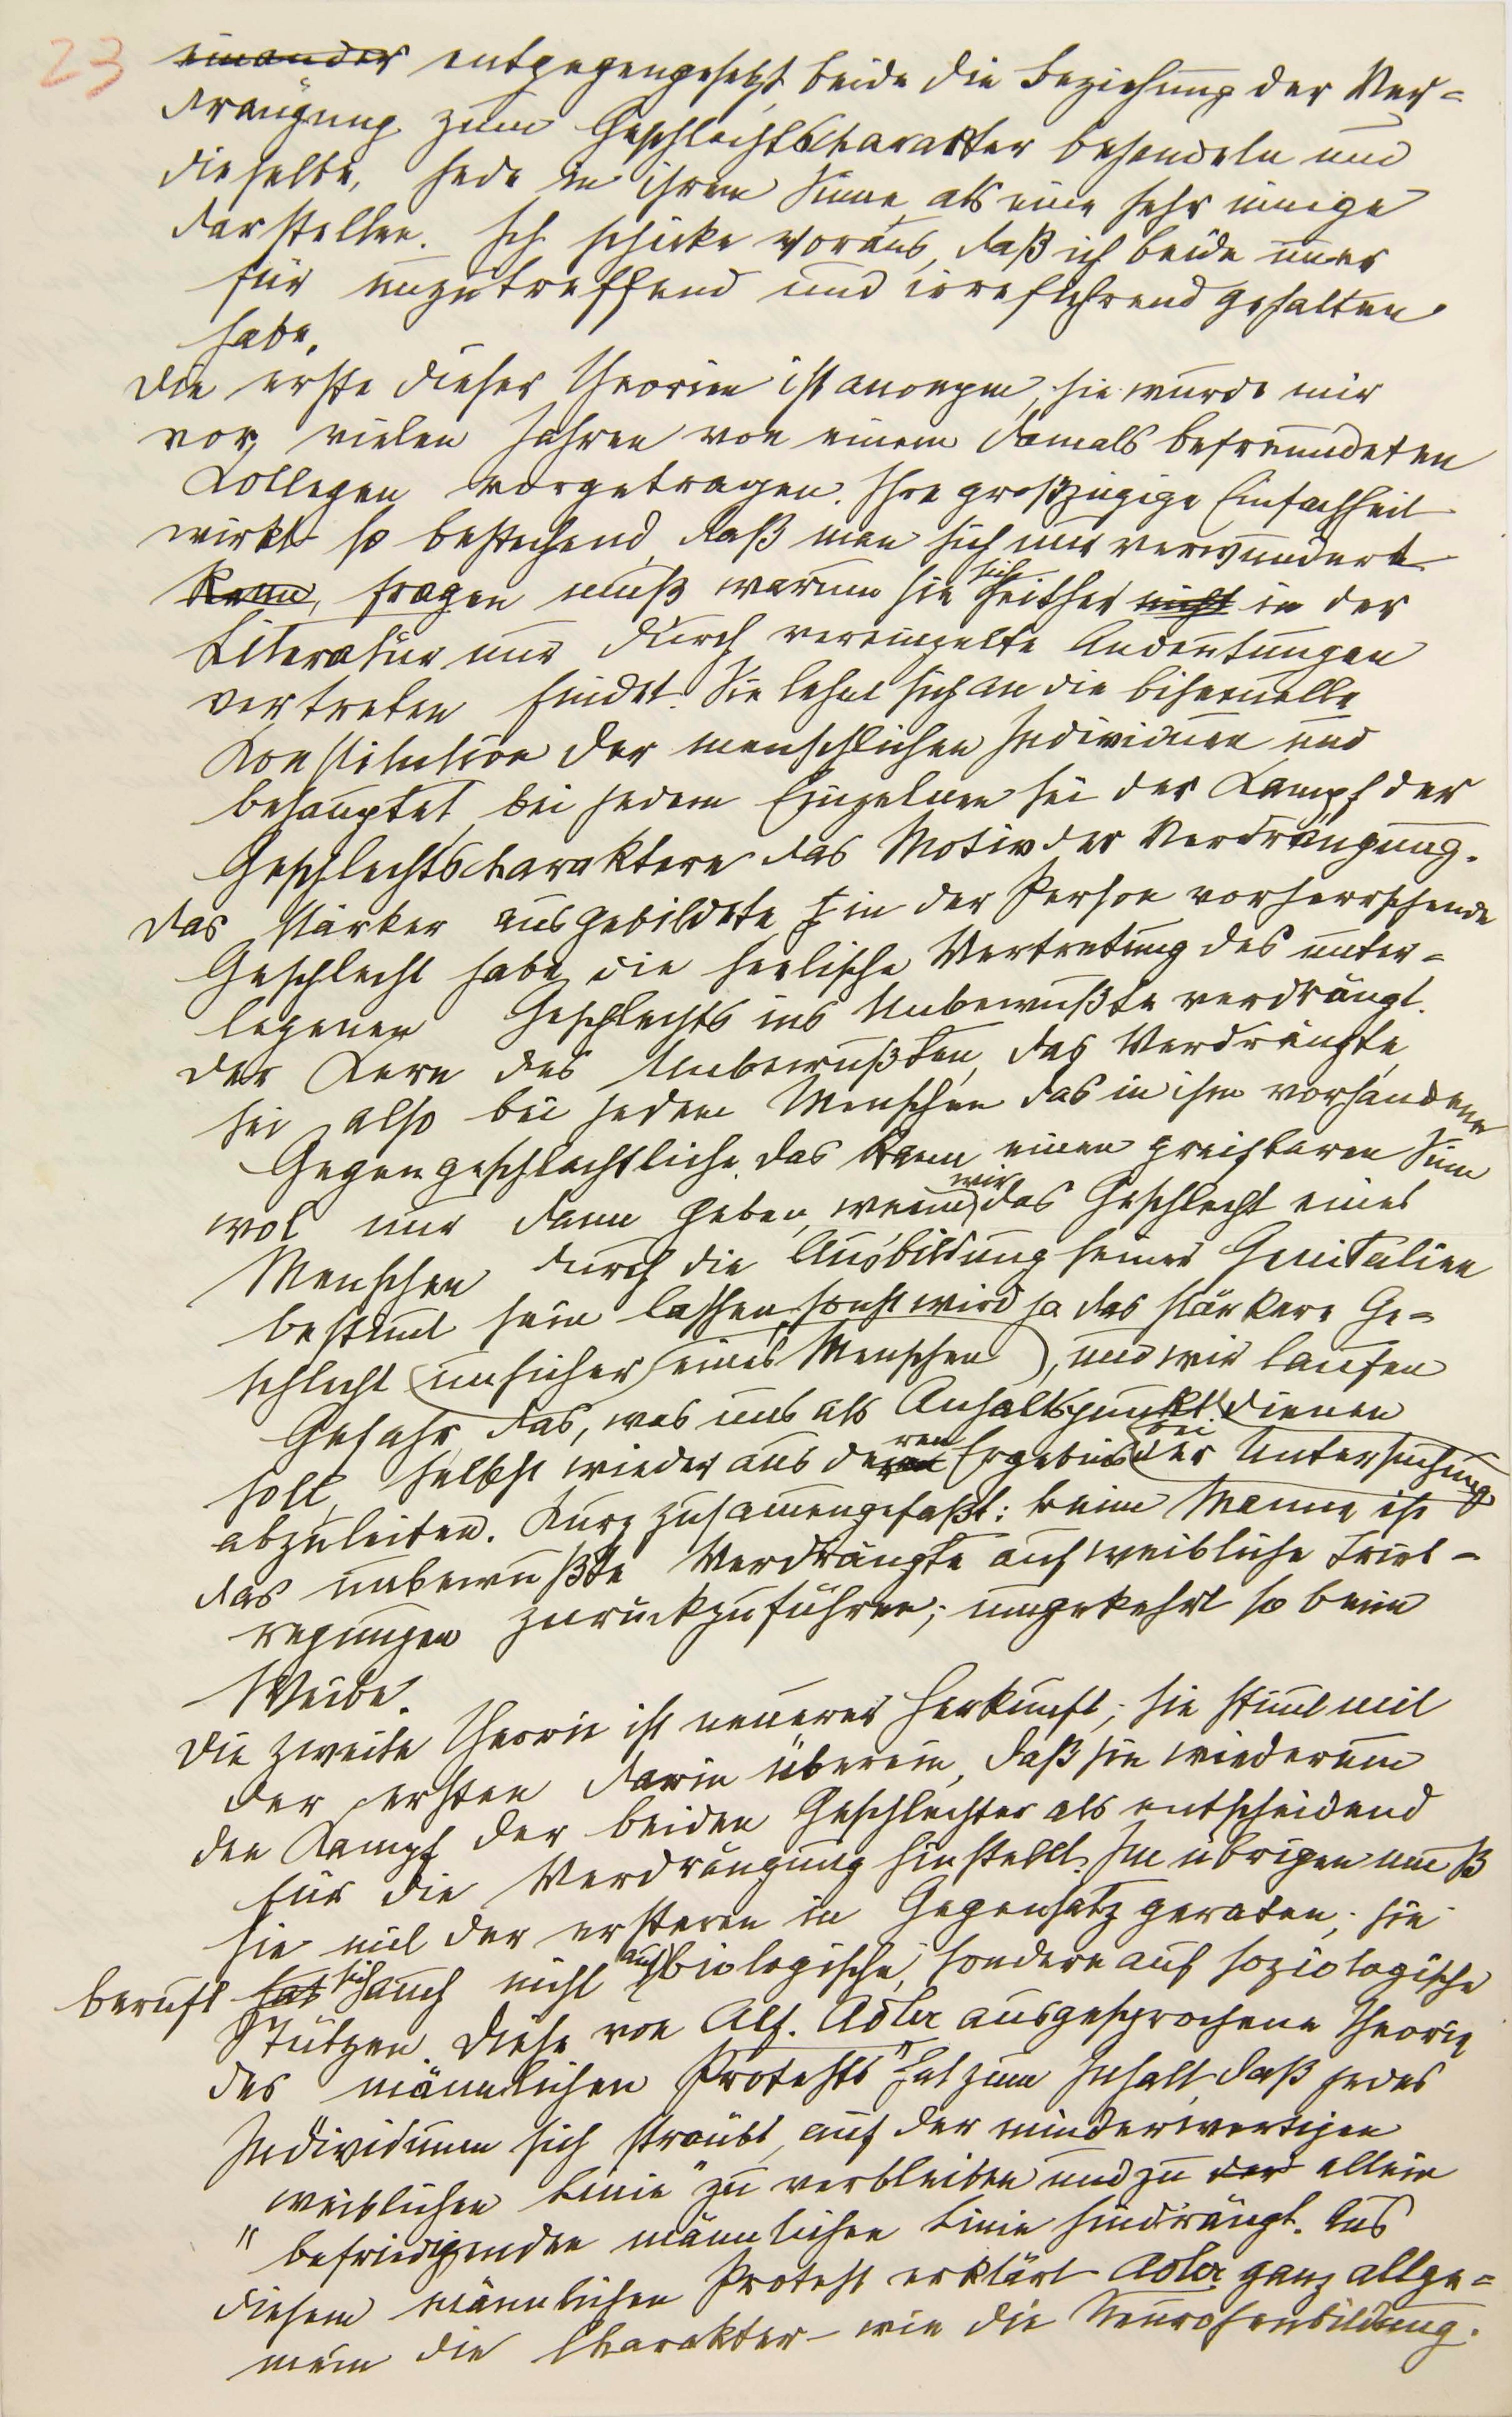 23
einander entgegengesetzt, beide die Beziehung der Ver=
drängung zum Geschlechtscharakter behandeln und
dieselbe, jede in ihrem Sinne, als eine sehr innige
darstellen. Ich schicke voraus, daß ich beide immer
für unzutreffend und irreführend gehalten
habe.
Die erste dieser Theorien ist anonym, sie wurde mir
vor vielen Jahren von einem damals befreundeten
Kollegen vorgetragen. Ihre großzügige Einfachheit
wirkt so bestechend, daß man sich nur verwundert
kann, fragen muß warum sie sich seither nicht in der
Literatur nur durch vereinzelte Andeutungen
vertreten findet. Sie lehnt sich an die bisexuelle
Konstitution der menschlichen Individuen und
behauptet, bei jedem Einzelnen sei der Kampf der
Geschlechtscharaktere das Motiv der Verdrängung.
Das stärker ausgebildete, in der Person vorherrschende
Geschlecht habe die seelische Vertretung des unter=
legenen Geschlechts ins Unbewußte verdrängt.
Der Kern des Unbewußten, das Verdrängte,
sei also bei jedem Menschen das in ihm vorhandene
Gegengeschlechtliche. Das kann einen greifbaren Sinn
wol nur dann geben, wenn wir das Geschlecht eines
Menschen durch die Ausbildung seiner Genitalien
bestimt sein lassen, sonst wird ja das stärkere Ge=
schlecht unsicher eines Menschen, und wir laufen
Gefahr, das, was uns als Anhaltspunkt bei dienen
soll, selbst wieder aus deren Ergebnis der Untersuchung
abzuleiten. Kurz zusammengefaßt: beim Manne ist
das unbewußte Verdrängte auf weibliche Trieb=
regungen zurückzuführen; umgekehrt so beim
Weibe.
Die zweite Theorie ist neuerer Herkunft; sie stimt mit
der ersten darin überein, daß sie wiederum
den Kampf der beiden Geschlechter als entscheidend
für die Verdrängung hinstellt. Im übrigen muß
sie mit der ersteren in Gegensatz geraten; sie
beruft hat sich auch nicht auf biologische, sondern auf soziologische
Stützen. Diese von Alf. Adler ausgesprochene Theorie
des „männlichen Protests" hat zum Inhalt, daß jedes
Individuum sich sträubt, auf der minderwertigen
„weiblichen Linie" zu verbleiben und zu der allein
befriedigenden männlichen Linie hindrängt. Aus
diesem männlichen Protest erklärt Adler ganz allge=
mein die Charakter- wie die Neurosenbildung.